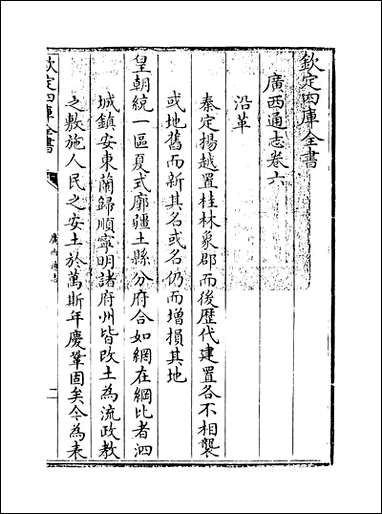 欽定四庫全書
廣西通志卷六
沿革
秦定揚越置桂林象郡而後歷代建置各不相襲
或地舊而新其名或名仍而增損其地
皇朝統一區夏式廓疆土縣分府合如網在綱比者泗
城鎮安東蘭歸順寧明諸府州皆改土為流政教
之敷施人民之安土於萬斯年慶鞏固矣今為表
欽定四庫全書
廣西通志
一